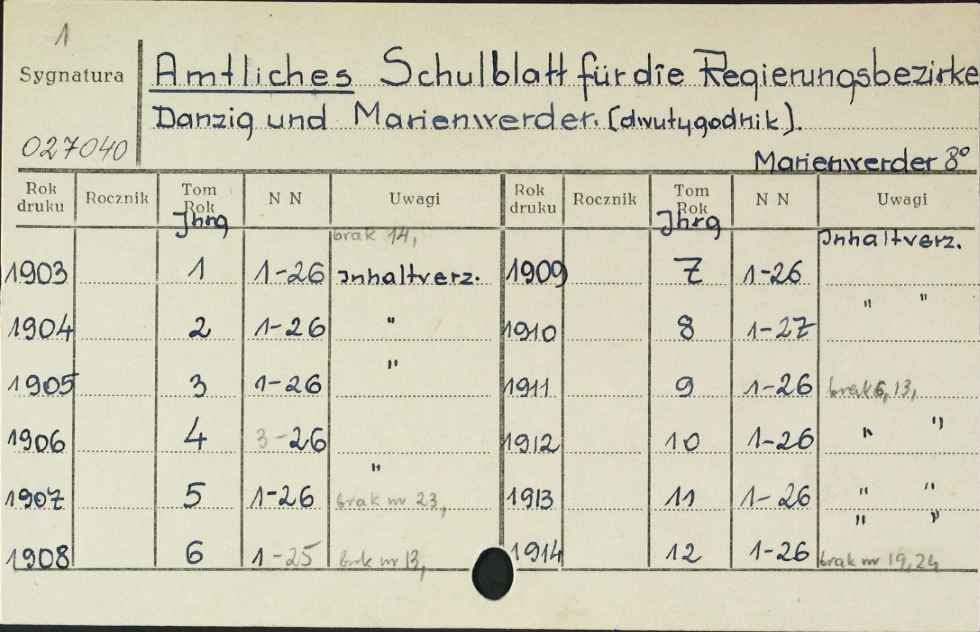 1
Sygnatura
Amtliches Schulblatt für die Regierungsbezirke
Danzig und Marienwerder. (dwutygodnik).
027040
Marienwerder 8°
Rok druku Rocznik Tom Rok Jhrg N N Uwagi Rok druku Rocznik Tom Rok Jhrg N N Uwagi
brak 14, Inhaltverz.
1903 1 1-26 Inhaltverz. 1909 7 1-26
" "
1904 2 1-26 " 1910 8 1-27
"
1905 3 1-26 1911 9 1-26 brak 6, 13,
1906 4 3-26 1912 10 1-26 " "
"
1907 5 1-26 brak nr 23, 1913 11 1-26 " "
" "
1908 6 1-25 brak nr 13, 1914 12 1-26 brak nr 19, 24